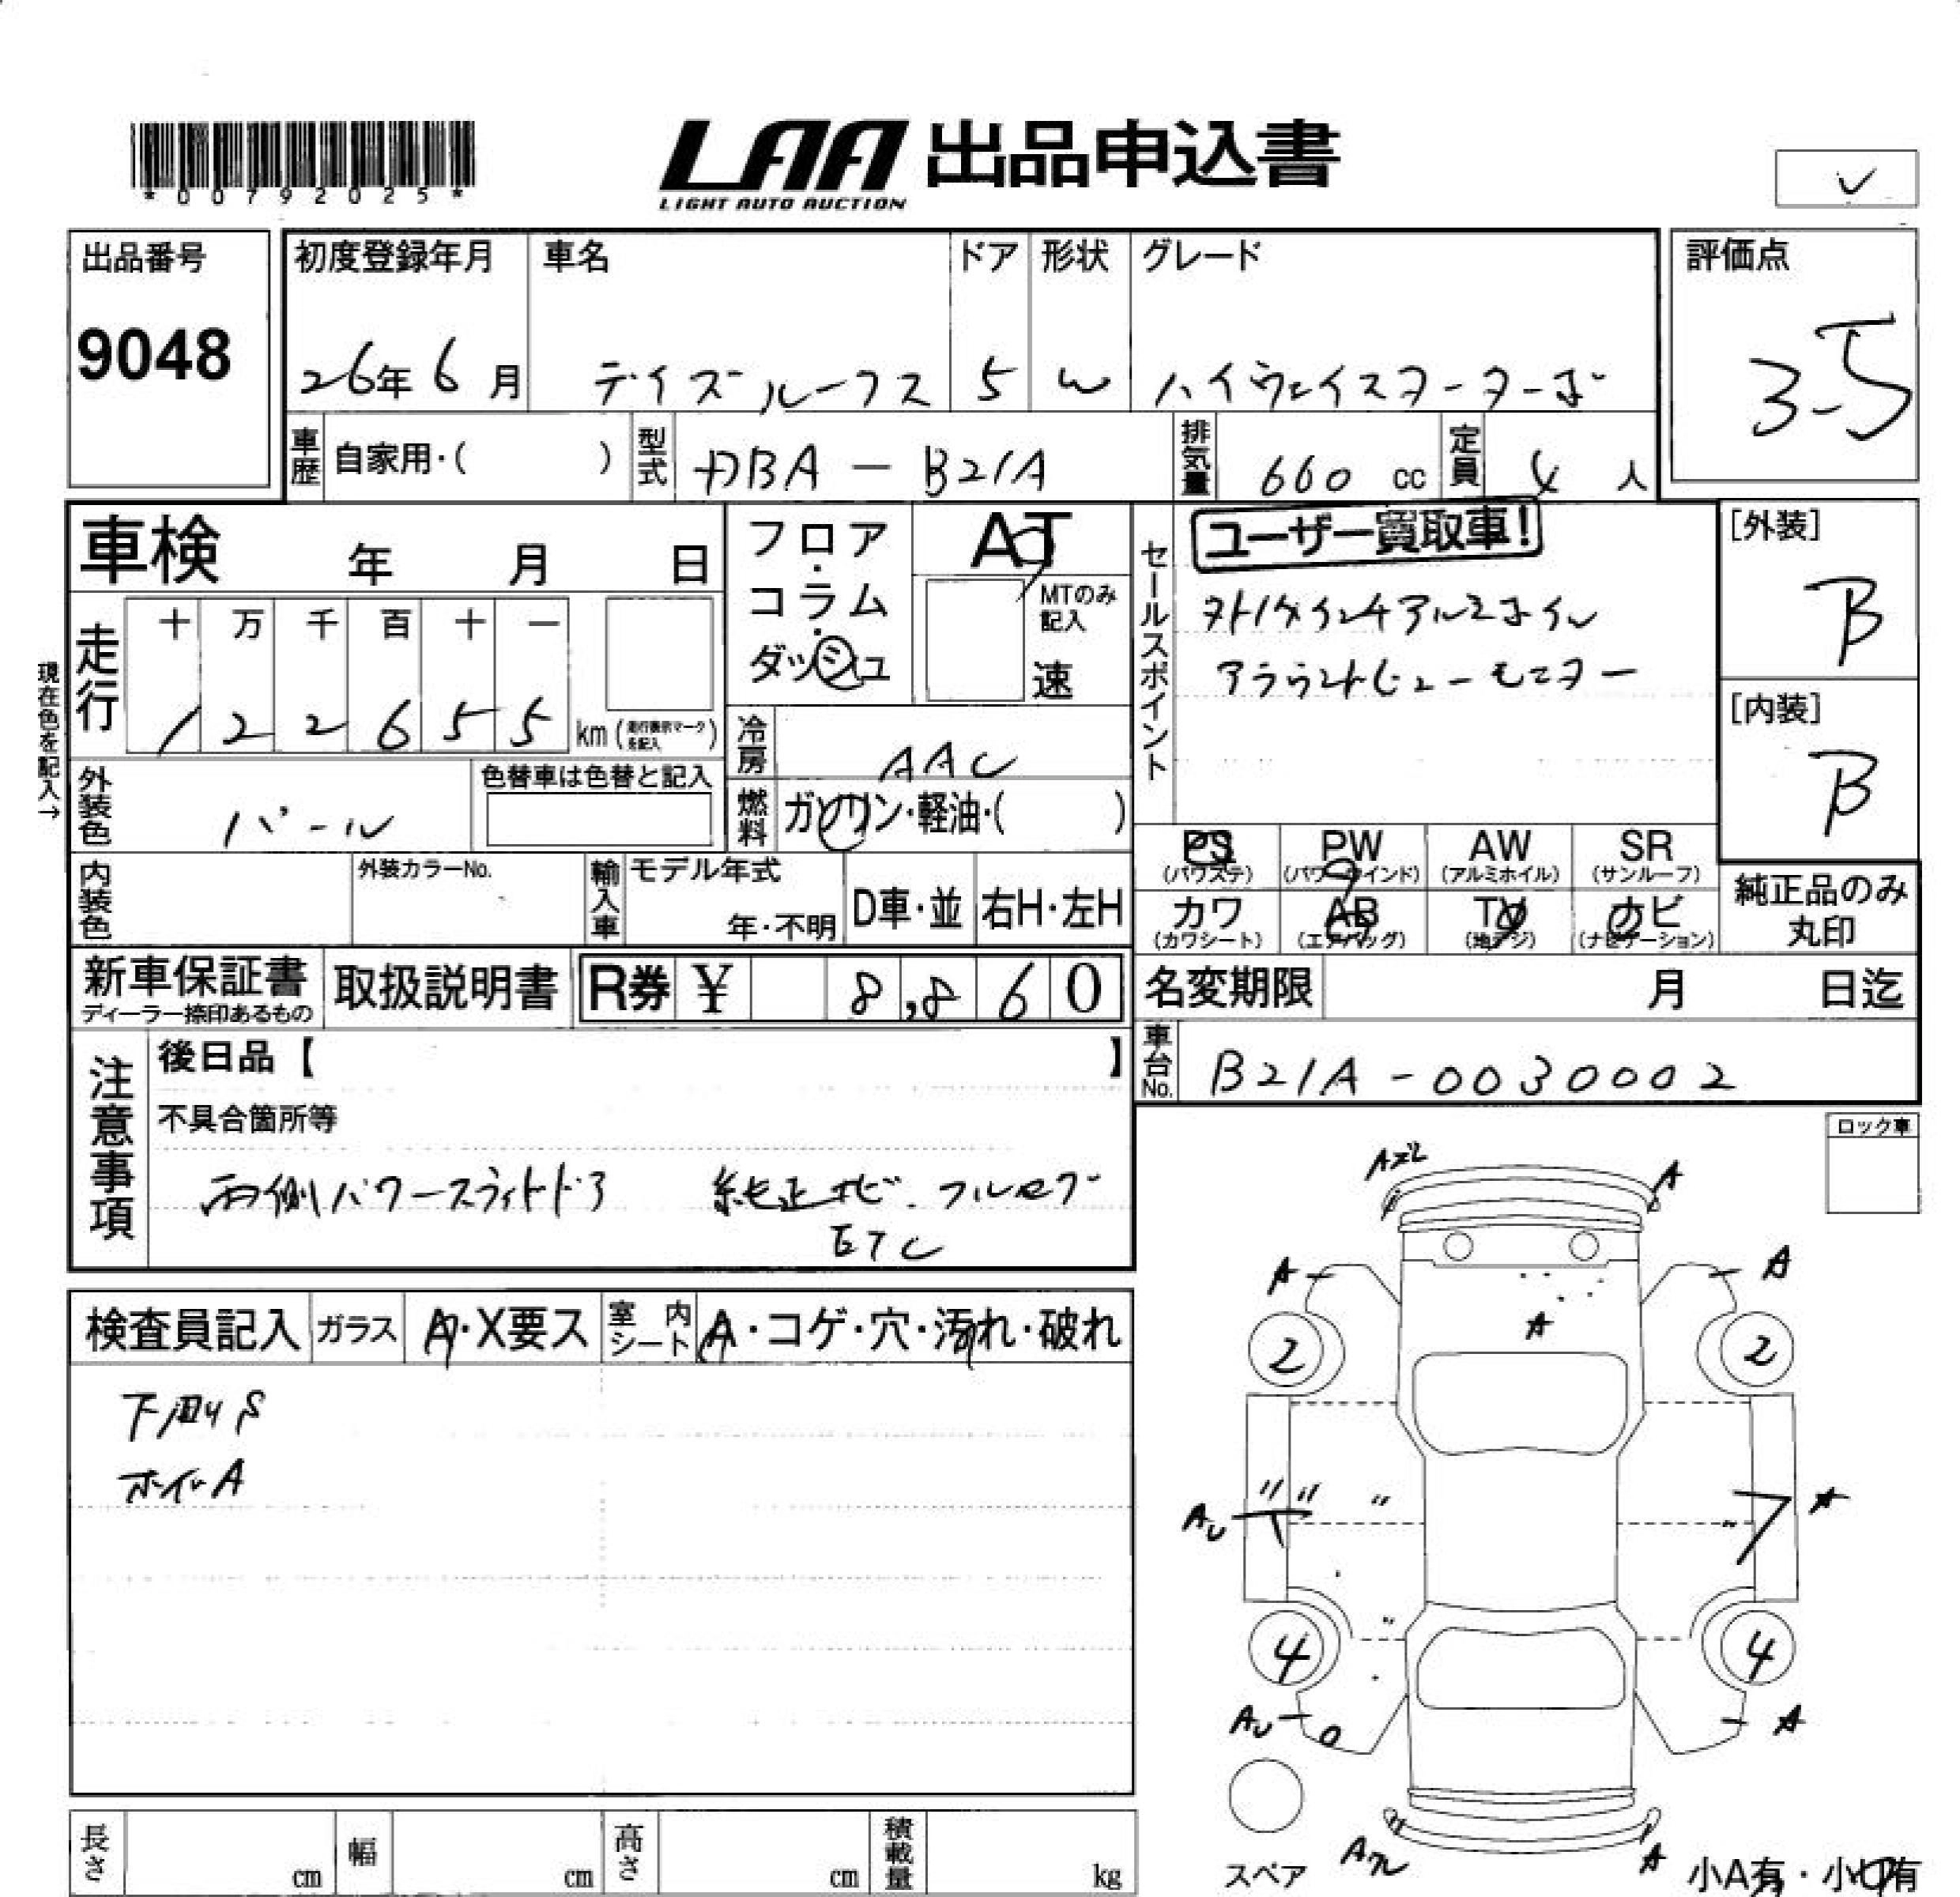 *00792025*
LAA 出品申込書
LIGHT AUTO AUCTION
✓
出品番号
9048
初度登録年月 車名 ドア 形状 グレード
26年6月 デイズルークス 5 W ハイウェイスターターボ
評価点
3.5
車歴 自家用・( ) 型式 DBA－B21A 排気量 660 cc 定員 4 人
車検 年 月 日
フロア・コラム・ダッシュ
AT
MTのみ記入
速
セールスポイント
ユーザー買取車!
アラウンドビューモニター
[外装]
B
[内装]
B
現在色を記入→
走行 十 万 千 百 十 一
1 2 2 6 5 5 km (走行表示マークを記入)
冷房 AAC
外装色 パール
色替車は色替と記入
燃料 ガソリン・軽油・( )
PS (パワステ) PW (パワーウインド) AW (アルミホイル) SR (サンルーフ)
カワ (カワシート) AB (エアバッグ) TV (地デジ) ナビ (ナビゲーション)
純正品のみ丸印
内装色 外装カラーNo. 輸入車 モデル年式 年・不明 D車・並 右H・左H
新車保証書 ディーラー捺印あるもの 取扱説明書 R券 ¥ 8,860
名変期限 月 日迄
車台No. B21A-0030002
注意事項
後日品【 】
不具合箇所等
両側パワースライドドア 純正ナビ・フルセグ
ETC
ロック車
検査員記入 ガラス A・X要ス 室内シート A・コゲ・穴・汚れ・破れ
下廻りS
ホイルA
A A
A A
A
2 2
AU A
4 4
AU A
スペア
A
小A有・小U有
長さ cm 幅 cm 高さ cm 積載量 kg